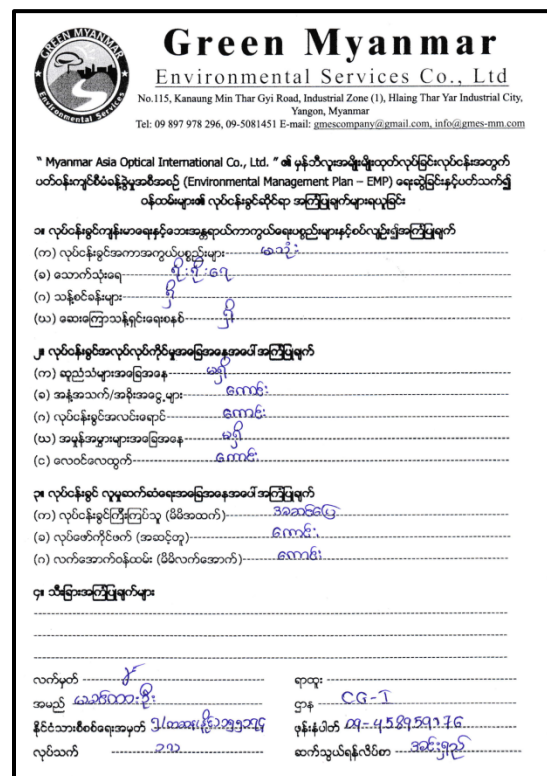 GREEN MYANMAR
Environmental Services
Green Myanmar
Environmental Services Co., Ltd
No.115, Kanaung Min Thar Gyi Road, Industrial Zone (1), Hlaing Thar Yar Industrial City,
Yangon, Myanmar
Tel: 09 897 978 296, 09-5081451 E-mail: gmescompany@gmail.com, info@gmes-mm.com
“ Myanmar Asia Optical International Co., Ltd. ” ၏ မှန်ဘီလူးအမျိုးမျိုးထုတ်လုပ်ခြင်းလုပ်ငန်းအတွက်
ပတ်ဝန်းကျင်စီမံခန့်ခွဲမှုအစီအစဉ် (Environmental Management Plan – EMP) ရေးဆွဲခြင်းနှင့်ပတ်သက်၍
ဝန်ထမ်းများ၏ လုပ်ငန်းခွင်ဆိုင်ရာ အကြံပြုချက်များရယူခြင်း
၁။ လုပ်ငန်းခွင်ကျန်းမာရေးနှင့်ဘေးအန္တရာယ်ကာကွယ်ရေးပစ္စည်းများနှင့်စပ်လျဉ်း၍အကြံပြုချက်
(က) လုပ်ငန်းခွင်အကာအကွယ်ပစ္စည်းများ မသုံး
(ခ) သောက်သုံးရေ ရိုးရိုးရေ
(ဂ) သန့်စင်ခန်းများ ရှိ
(ဃ) ဆေးကြောသန့်ရှင်းရေးစနစ် ရှိ
၂။ လုပ်ငန်းခွင်အလုပ်လုပ်ကိုင်မှုအခြေအနေအပေါ် အကြံပြုချက်
(က) ဆူညံသံများအခြေအနေ မရှိ
(ခ) အနံ့အသက်/အခိုးအငွေ့များ ကောင်း
(ဂ) လုပ်ငန်းခွင်အလင်းရောင် ကောင်း
(ဃ) အမှုန်အမွှားများအခြေအနေ မရှိ
(င) လေဝင်လေထွက် ကောင်း
၃။ လုပ်ငန်းခွင် လူမှုဆက်ဆံရေးအခြေအနေအပေါ် အကြံပြုချက်
(က) လုပ်ငန်းခွင်ကြီးကြပ်သူ (မိမိအထက်) အဆင်ပြေ
(ခ) လုပ်ဖော်ကိုင်ဖက် (အဆင့်တူ) ကောင်း
(ဂ) လက်အောက်ဝန်ထမ်း (မိမိလက်အောက်) ကောင်း
၄။ သီးခြားအကြံပြုချက်များ
လက်မှတ်
ရာထူး
အမည်
ဌာန CG-I
နိုင်ငံသားစိစစ်ရေးအမှတ်
ဖုန်းနံပါတ် 09-458959176
လုပ်သက်
ဆက်သွယ်ရန်လိပ်စာ